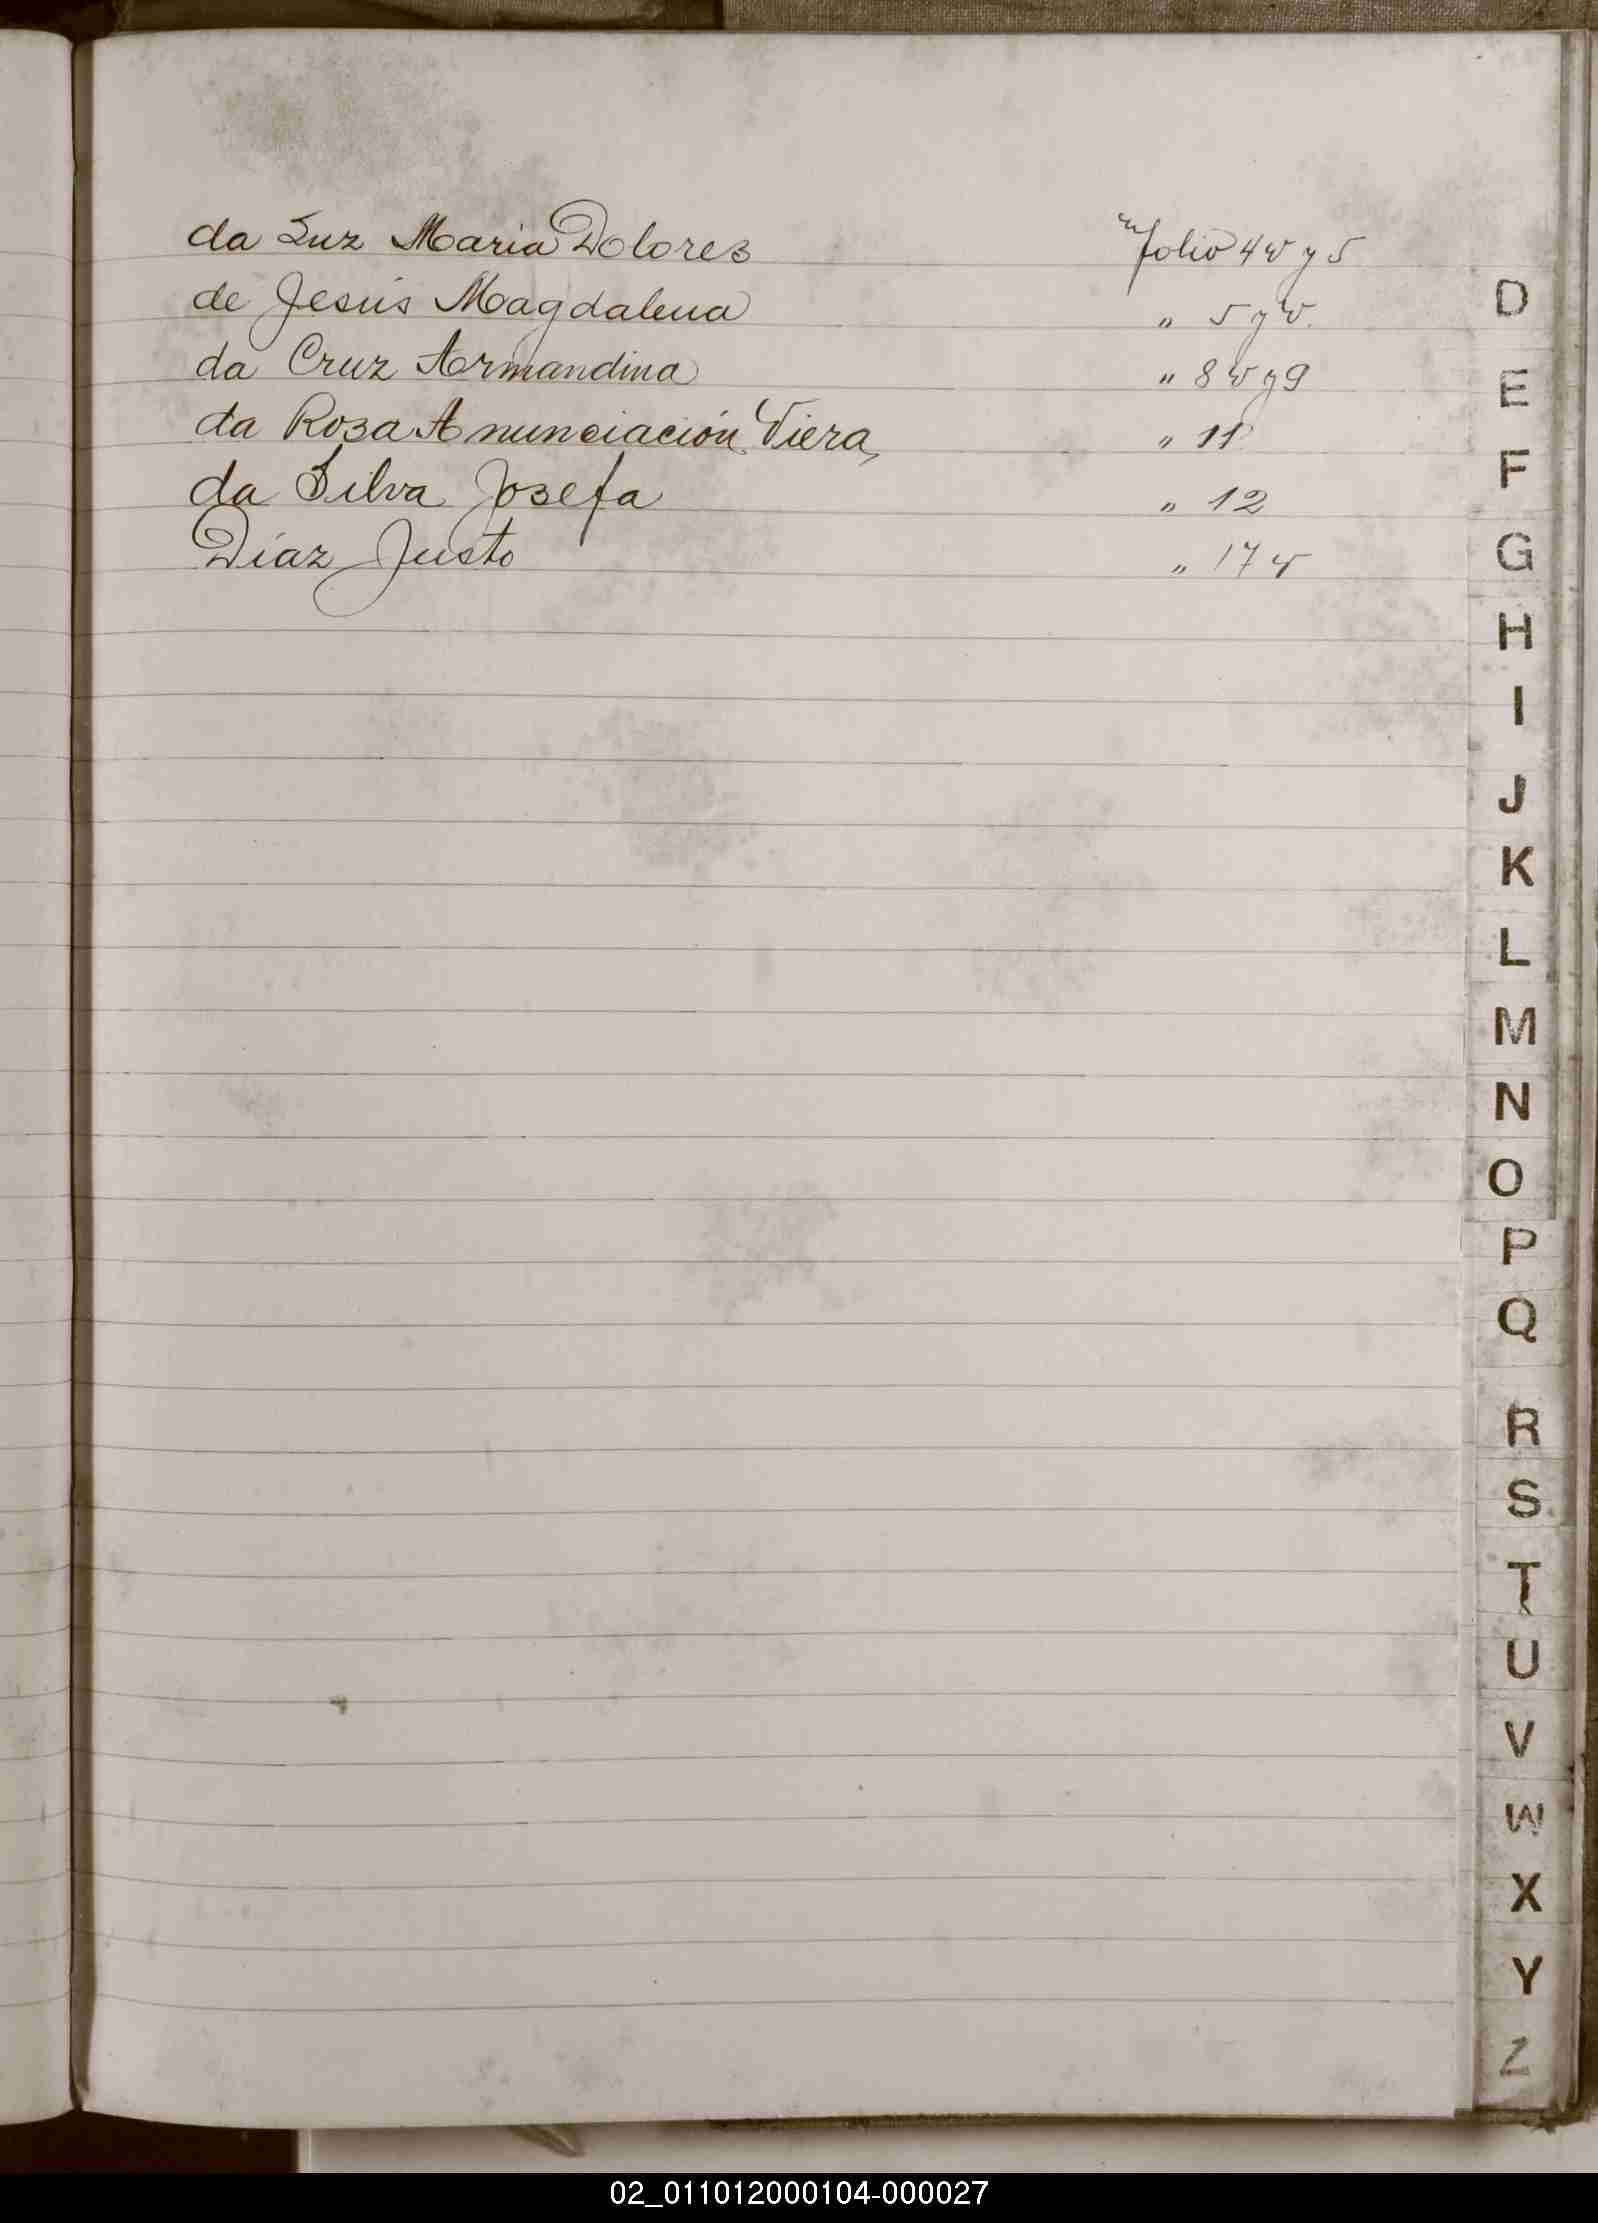 da Luz Maria Dolores folio 4 v y 5
de Jesús Magdalena " 5 y v.
da Cruz Armandina " 8 v y 9
da Rosa Anunciación Viera " 11
da Silva Josefa " 12
Díaz Justo " 17 v
D
E
F
G
H
I
J
K
L
M
N
O
P
Q
R
S
T
U
V
W
X
Y
Z
02_011012000104-000027